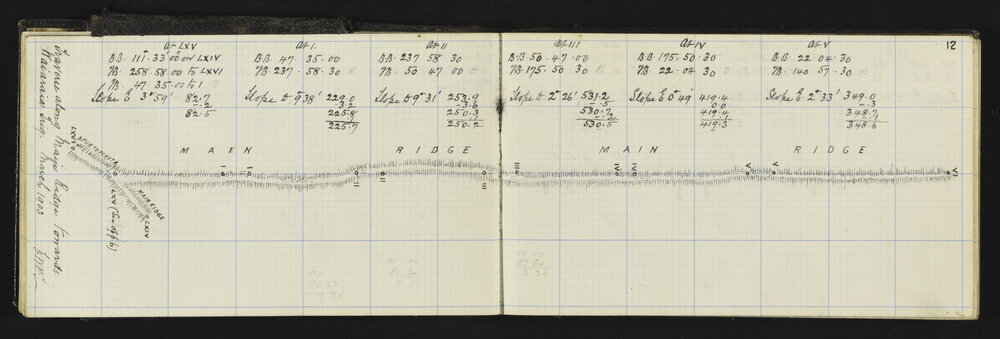 Traverse along Main Ridge towards
Trig. March 1903
12
At LXV
BB. 111°. 33'. 00" on LXIV
FB. 258. 58. 00 to LXVI
FB. 47. 35. 00 to I
Slope E 3° 59' 82.7
.2
82.5
At I.
BB 47. 35. 00
FB. 237. 58. 30
Slope D 9° 38' 229.0
3.2
225.8
225.7
At II
BB. 237 58 30
FB. 50 47 00
Slope D 9° 31' 253.9
3.6
250.3
250.2
At III
BB. 50. 47. 00
FB. 175. 50. 30
Slope D 2° 26' 531.2
.5
530.7
530.5
At IV
BB. 175. 50. 30
FB. 22. 04. 30
Slope E 0° 49' 419.4
0.0
419.4
419.3
At V
BB. 22. 04. 30
FB. 140 57. 30
Slope E. 2° 33' 349.0
.3
348.7
348.6
MAIN RIDGE MAIN RIDGE
LXVI
SPUR TO
LXV (See pg 6)
MAIN RIDGE
LXIV
I I
II II
III III
IV IV
V V
VI